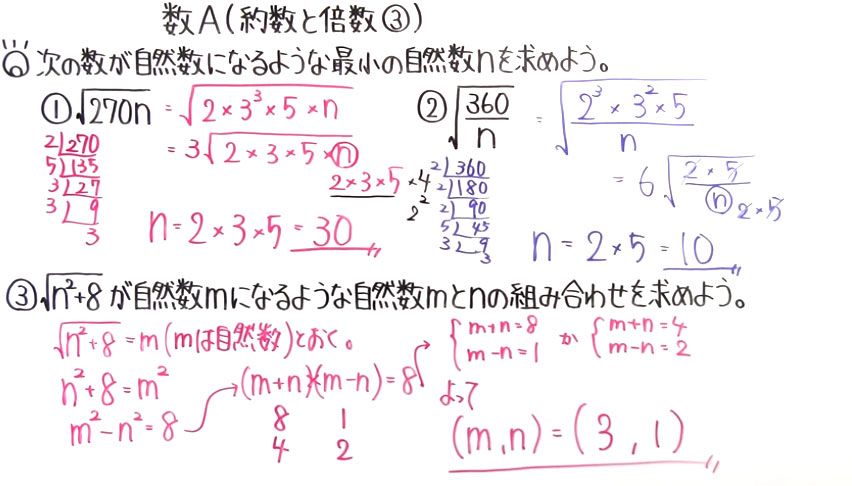 数A(約数と倍数③)
次の数が自然数になるような最小の自然数nを求めよう。
①√270n = √2×3³×5×n
= 3√2×3×5×n
2×3×5 ×4
2²
2)270
5)135
3)27
3)9
3
n = 2×3×5 = 30
②√360/n = √2³×3²×5/n
= 6√2×5/n
2×5
2)360
2)180
2)90
5)45
3)9
3
n = 2×5 = 10
③√n²+8 が自然数mになるような自然数mとnの組み合わせを求めよう。
√n²+8 = m(mは自然数)とおく。
n²+8 = m²
m²-n² = 8
(m+n)×(m-n) = 8
8 1
4 2
{m+n=8 か {m+n=4
m-n=1 m-n=2
よって
(m,n) = (3,1)